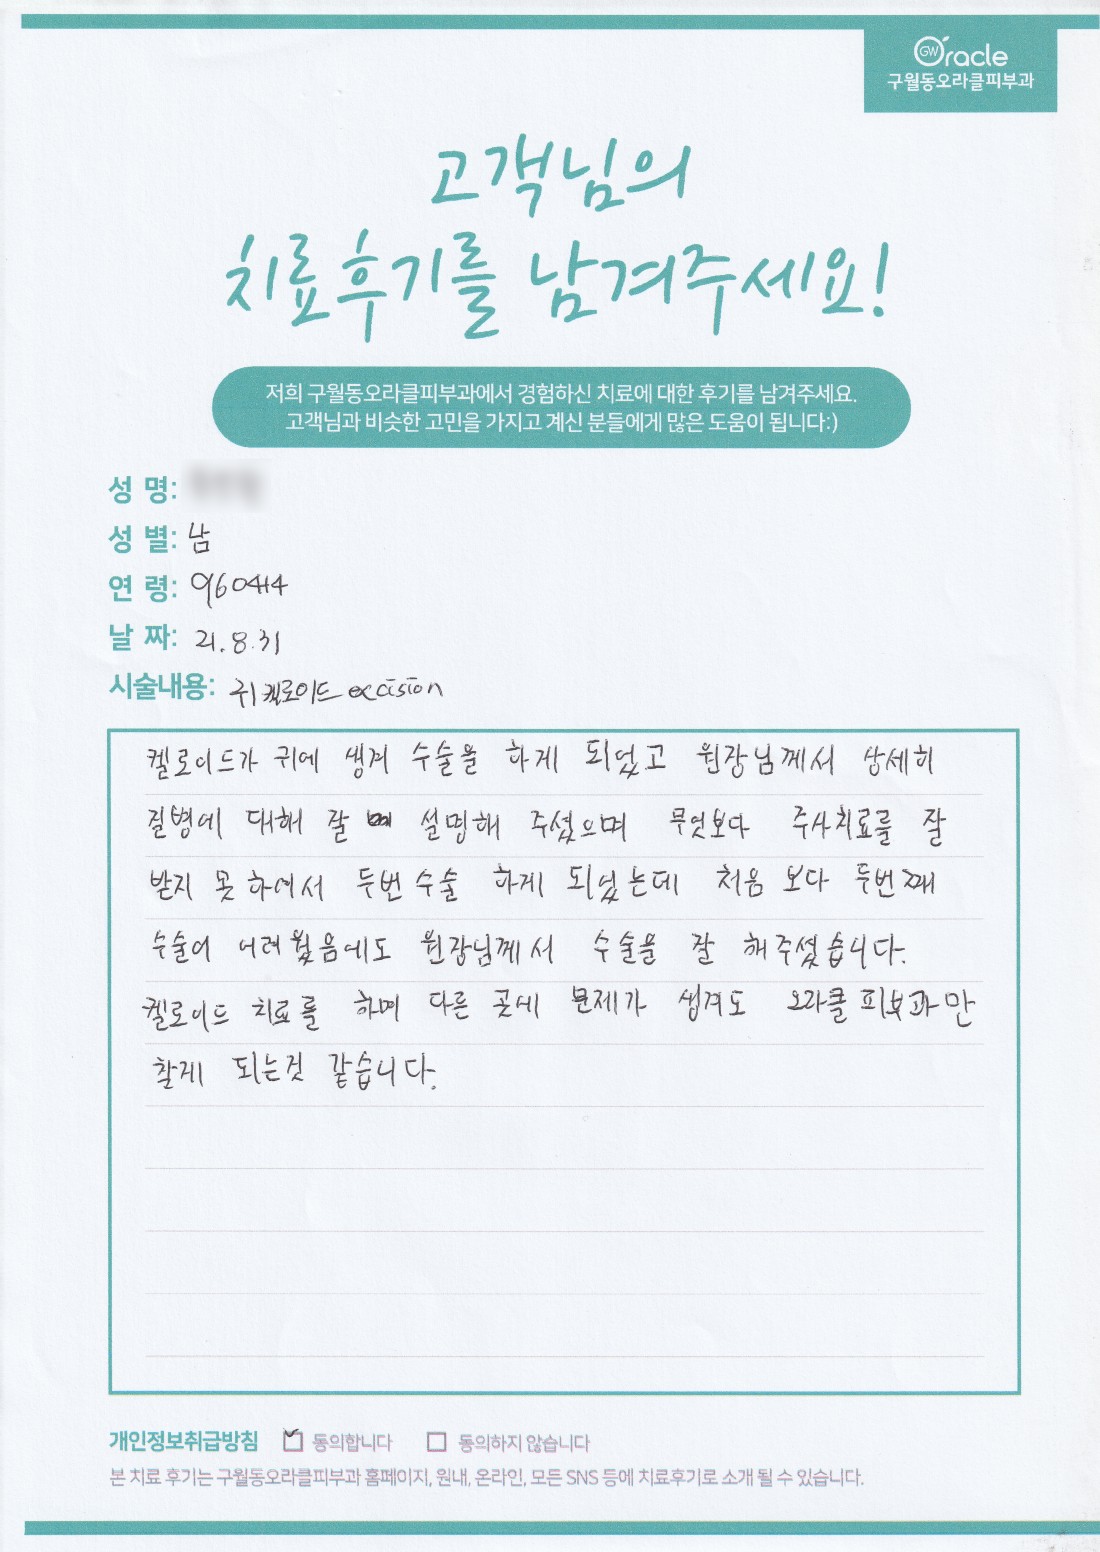 GW Oracle
구월동오라클피부과
고객님의
치료후기를 남겨주세요!
저희 구월동오라클피부과에서 경험하신 치료에 대한 후기를 남겨주세요.
고객님과 비슷한 고민을 가지고 계신 분들에게 많은 도움이 됩니다:)
성 명:
성 별: 남
연 령: 960414
날 짜: 21.8.31
시술내용: 귀켈로이드 excision
켈로이드가 귀에 생겨 수술을 하게 되었고 원장님께서 상세히
질병에 대해 잘 설명해 주셨으며 무엇보다 주사치료를 잘
받지 못하여서 두번 수술 하게 되었는데 처음 보다 두번째
수술이 어려웠음에도 원장님께서 수술을 잘 해주셨습니다.
켈로이드 치료를 하며 다른 곳에 문제가 생겨도 오라클 피부과만
찾게 되는것 같습니다.
개인정보취급방침 동의합니다 동의하지 않습니다
본 치료 후기는 구월동오라클피부과 홈페이지, 원내, 온라인, 모든 SNS 등에 치료후기로 소개 될 수 있습니다.